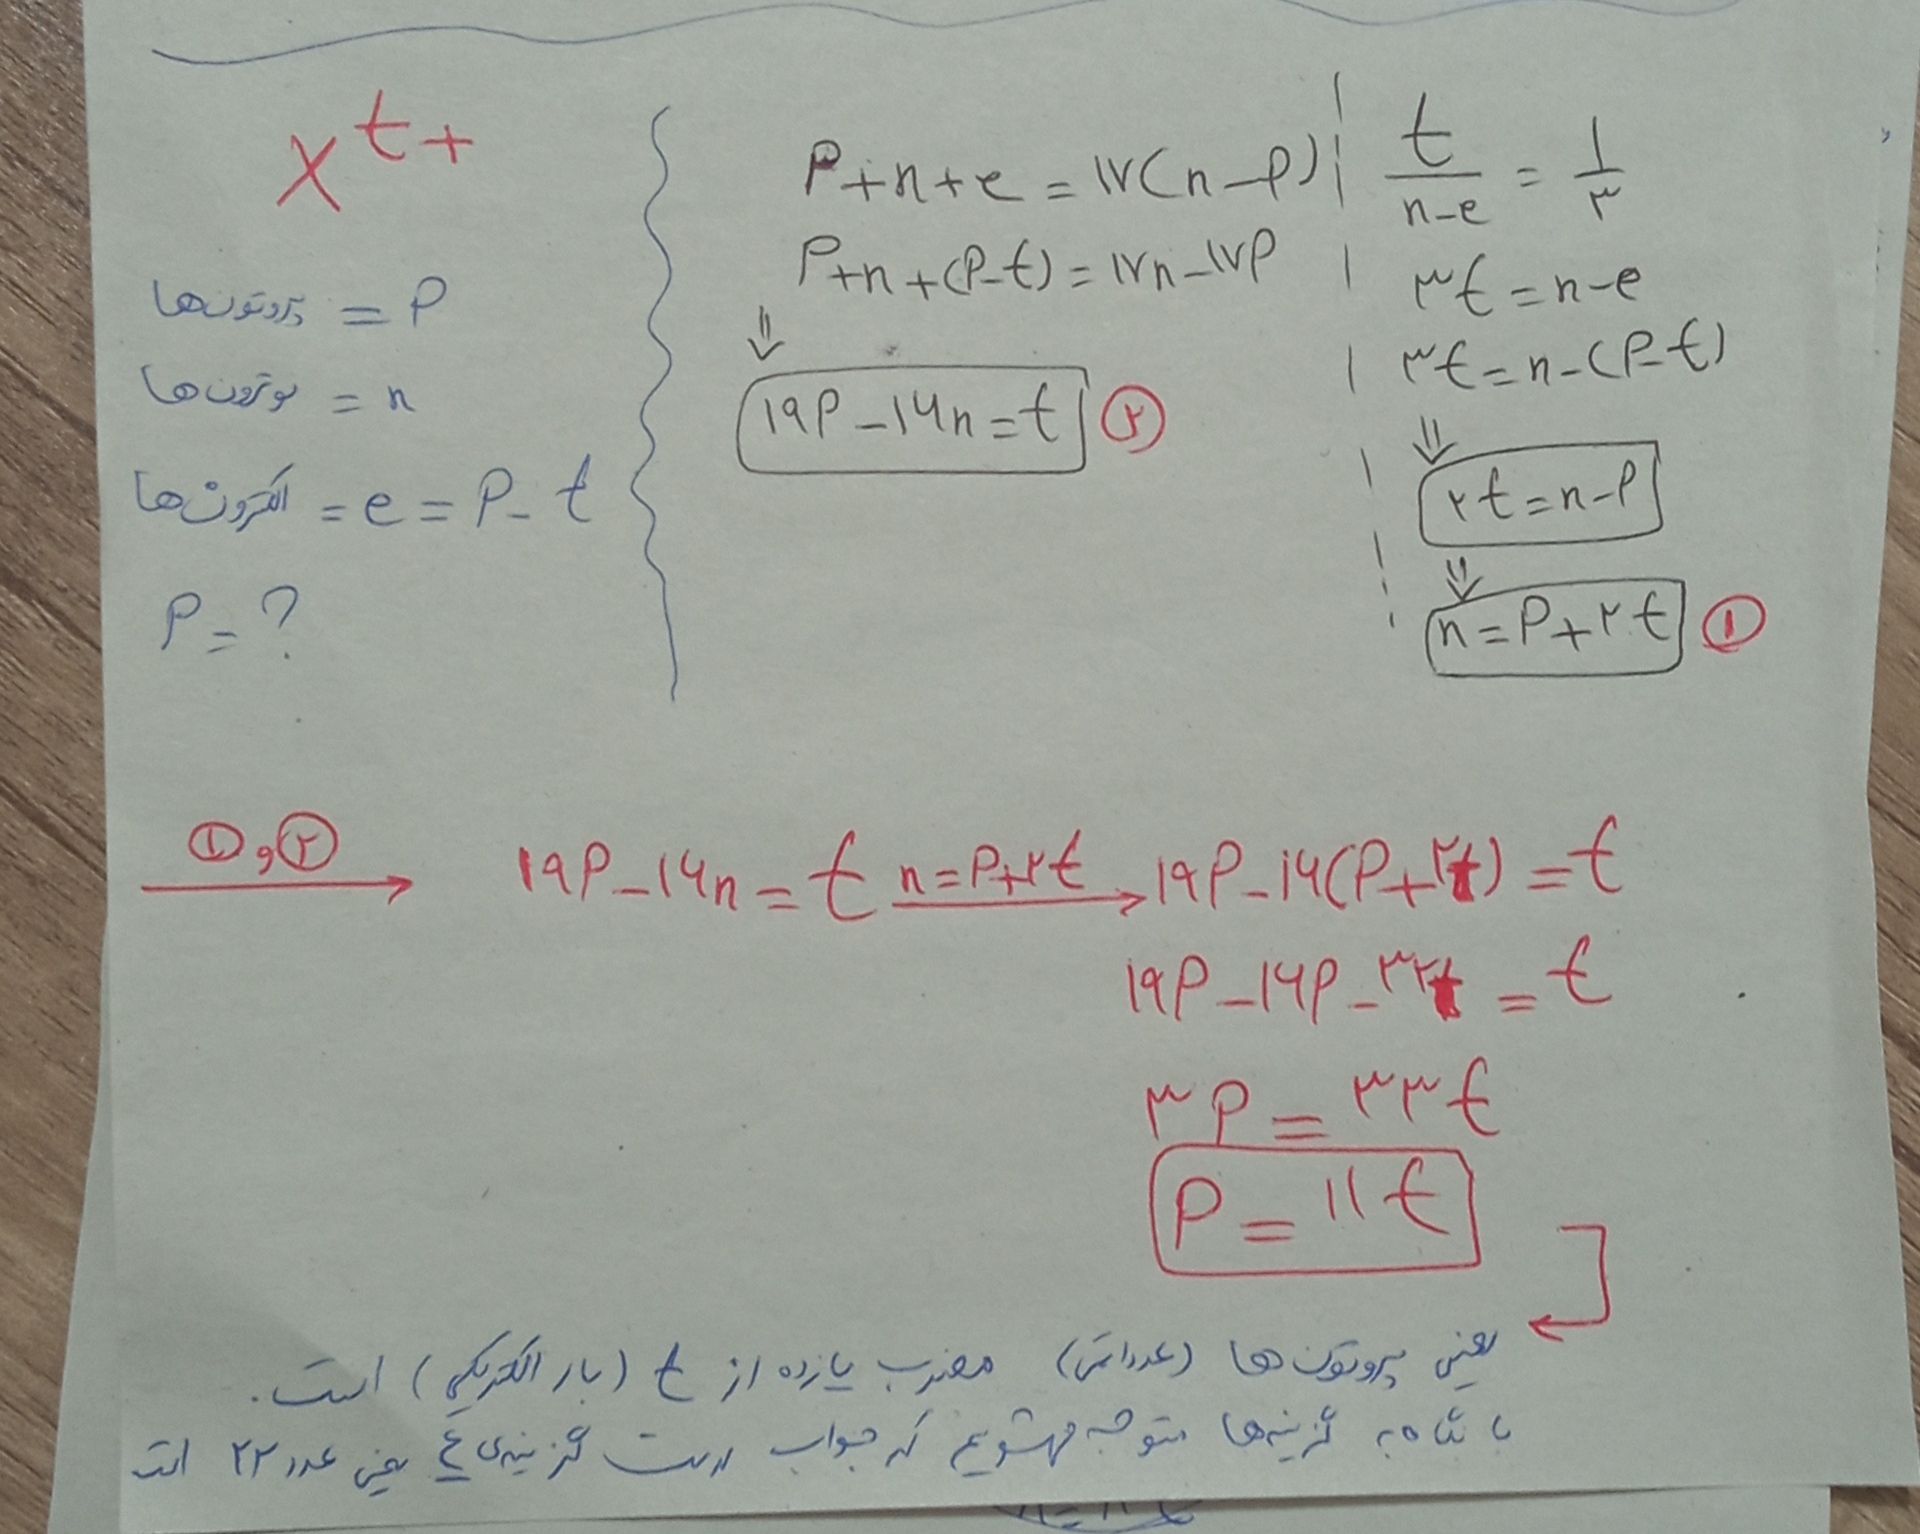 X^t+
پروتون‌ها = P
نوترون‌ها = n
الکترون‌ها = e = P - t
P = ?
P+n+e = ۱۷(n-P)
P+n+(P-t) = ۱۷n-۱۷P
⇓
۱۹P-۱۶n=t ②
t/(n-e) = ۱/۳
۳t=n-e
۳t=n-(P-t)
⇓
۲t=n-P
⇓
n=P+۲t ①
① و ② → ۱۹P-۱۶n=t n=P+۲t → ۱۹P-۱۶(P+۲t)=t
۱۹P-۱۶P-۳۲t=t
۳P=۳۳t
P=۱۱t
یعنی پروتون ها (عدد اتمی) مضرب یازده از t (بار الکتریکی) است.
با نگاه به گزینه‌ها متوجه میشویم که جواب درست گزینه‌ی ۴ یعنی عدد ۲۲ است